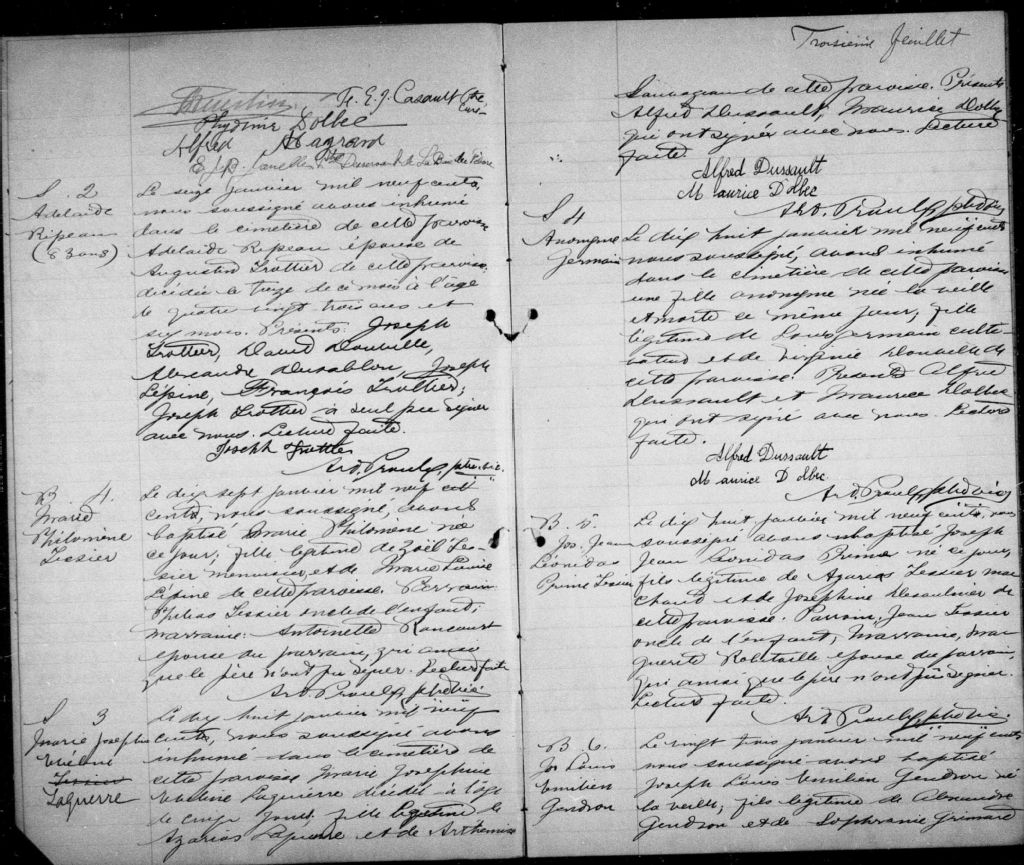 Tr. E. J. Casault Ptre Curé
Phydime Dolbec
Alfred Hagrand
S. 2
Adelaide
Ripeau
(83 ans)
Le seize janvier mil neuf cents,
nous soussigné avons inhumé
dans le cimetière de cette paroisse
Adelaide Ripeau épouse de
Augustin Trottier de cette paroisse,
décédée le treize de ce mois à l'âge
de quatre vingt trois ans et
six mois. Présents: Joseph
Trottier, David Douville,
Alexandre Dusablon, Joseph
Lépine, François Trottier;
Joseph Trottier a seul pu signer
avec nous. Lecture faite.
Joseph Trottier
Art. Proulx, ptre vic.
B. 4.
Marie
Philomène
Tessier
Le dix sept janvier mil neuf
cents, nous soussigné, avons
baptisé Marie Philomène née
ce jour; fille légitime de Zoël Tes-
sier menuisier, et de Marie Louise
Lépine de cette paroisse. Parrain
Tessier oncle de l'enfant;
marraine: Antoinette Rancourt
épouse du parrain, qui ainsi
que le père n'ont pu signer. Lecture faite
Art. Proulx ptre vic.
S. 3
Marie Josephine
Eveline
Tessier
Laguerre
Le dix huit janvier mil neuf
cents, nous soussigné avons
inhumé dans le cimetière de
cette paroisse Marie Josephine
Eveline Laguerre décédée à l'âge
de cinq jours, fille légitime de
Azarias Laguerre et de Arthémise
Troisième feuillet
Sauvageau de cette paroisse. Présents
Alfred Dussault, Maurice Dolbec
qui ont signé avec nous. Lecture
faite.
Alfred Dussault
Maurice Dolbec
Art. Proulx, ptre vic.
S. 4
Anonyme
Germain
Le dix huit janvier mil neuf cents
nous soussigné, avons inhumé
dans le cimetière de cette paroisse
une fille anonyme née la veille
& morte ce même jour, fille
légitime de Louis Germain culti-
vateur et de Virginie Douville de
cette paroisse. Présents Alfred
Dussault et Maurice Dolbec
qui ont signé avec nous. Lecture
faite.
Alfred Dussault
Maurice Dolbec
Art. Proulx, ptre vic.
B. 5.
Jos. Jean
Léonidas
Prime Tessier
Le dix huit janvier mil neuf cents, nous
soussigné avons baptisé Joseph
Jean Léonidas Prime né ce jour,
fils légitime de Azarias Tessier mar
chand et de Josephine Desaulnier de
cette paroisse. Parrain, Jean Tessier
oncle de l'enfant, Marraine, Mar
guerite Robitaille épouse du parrain,
qui ainsi que le père n'ont pu signer.
Lecture faite.
Art. Proulx, ptre vic.
B. 6.
Jos Louis
Emilien
Gendron
Le vingt trois janvier mil neuf cents
nous soussigné avons baptisé
Joseph Louis Emilien Gendron né
la veille; fils légitime de Alexandre
Gendron et de Sophranie Grimard